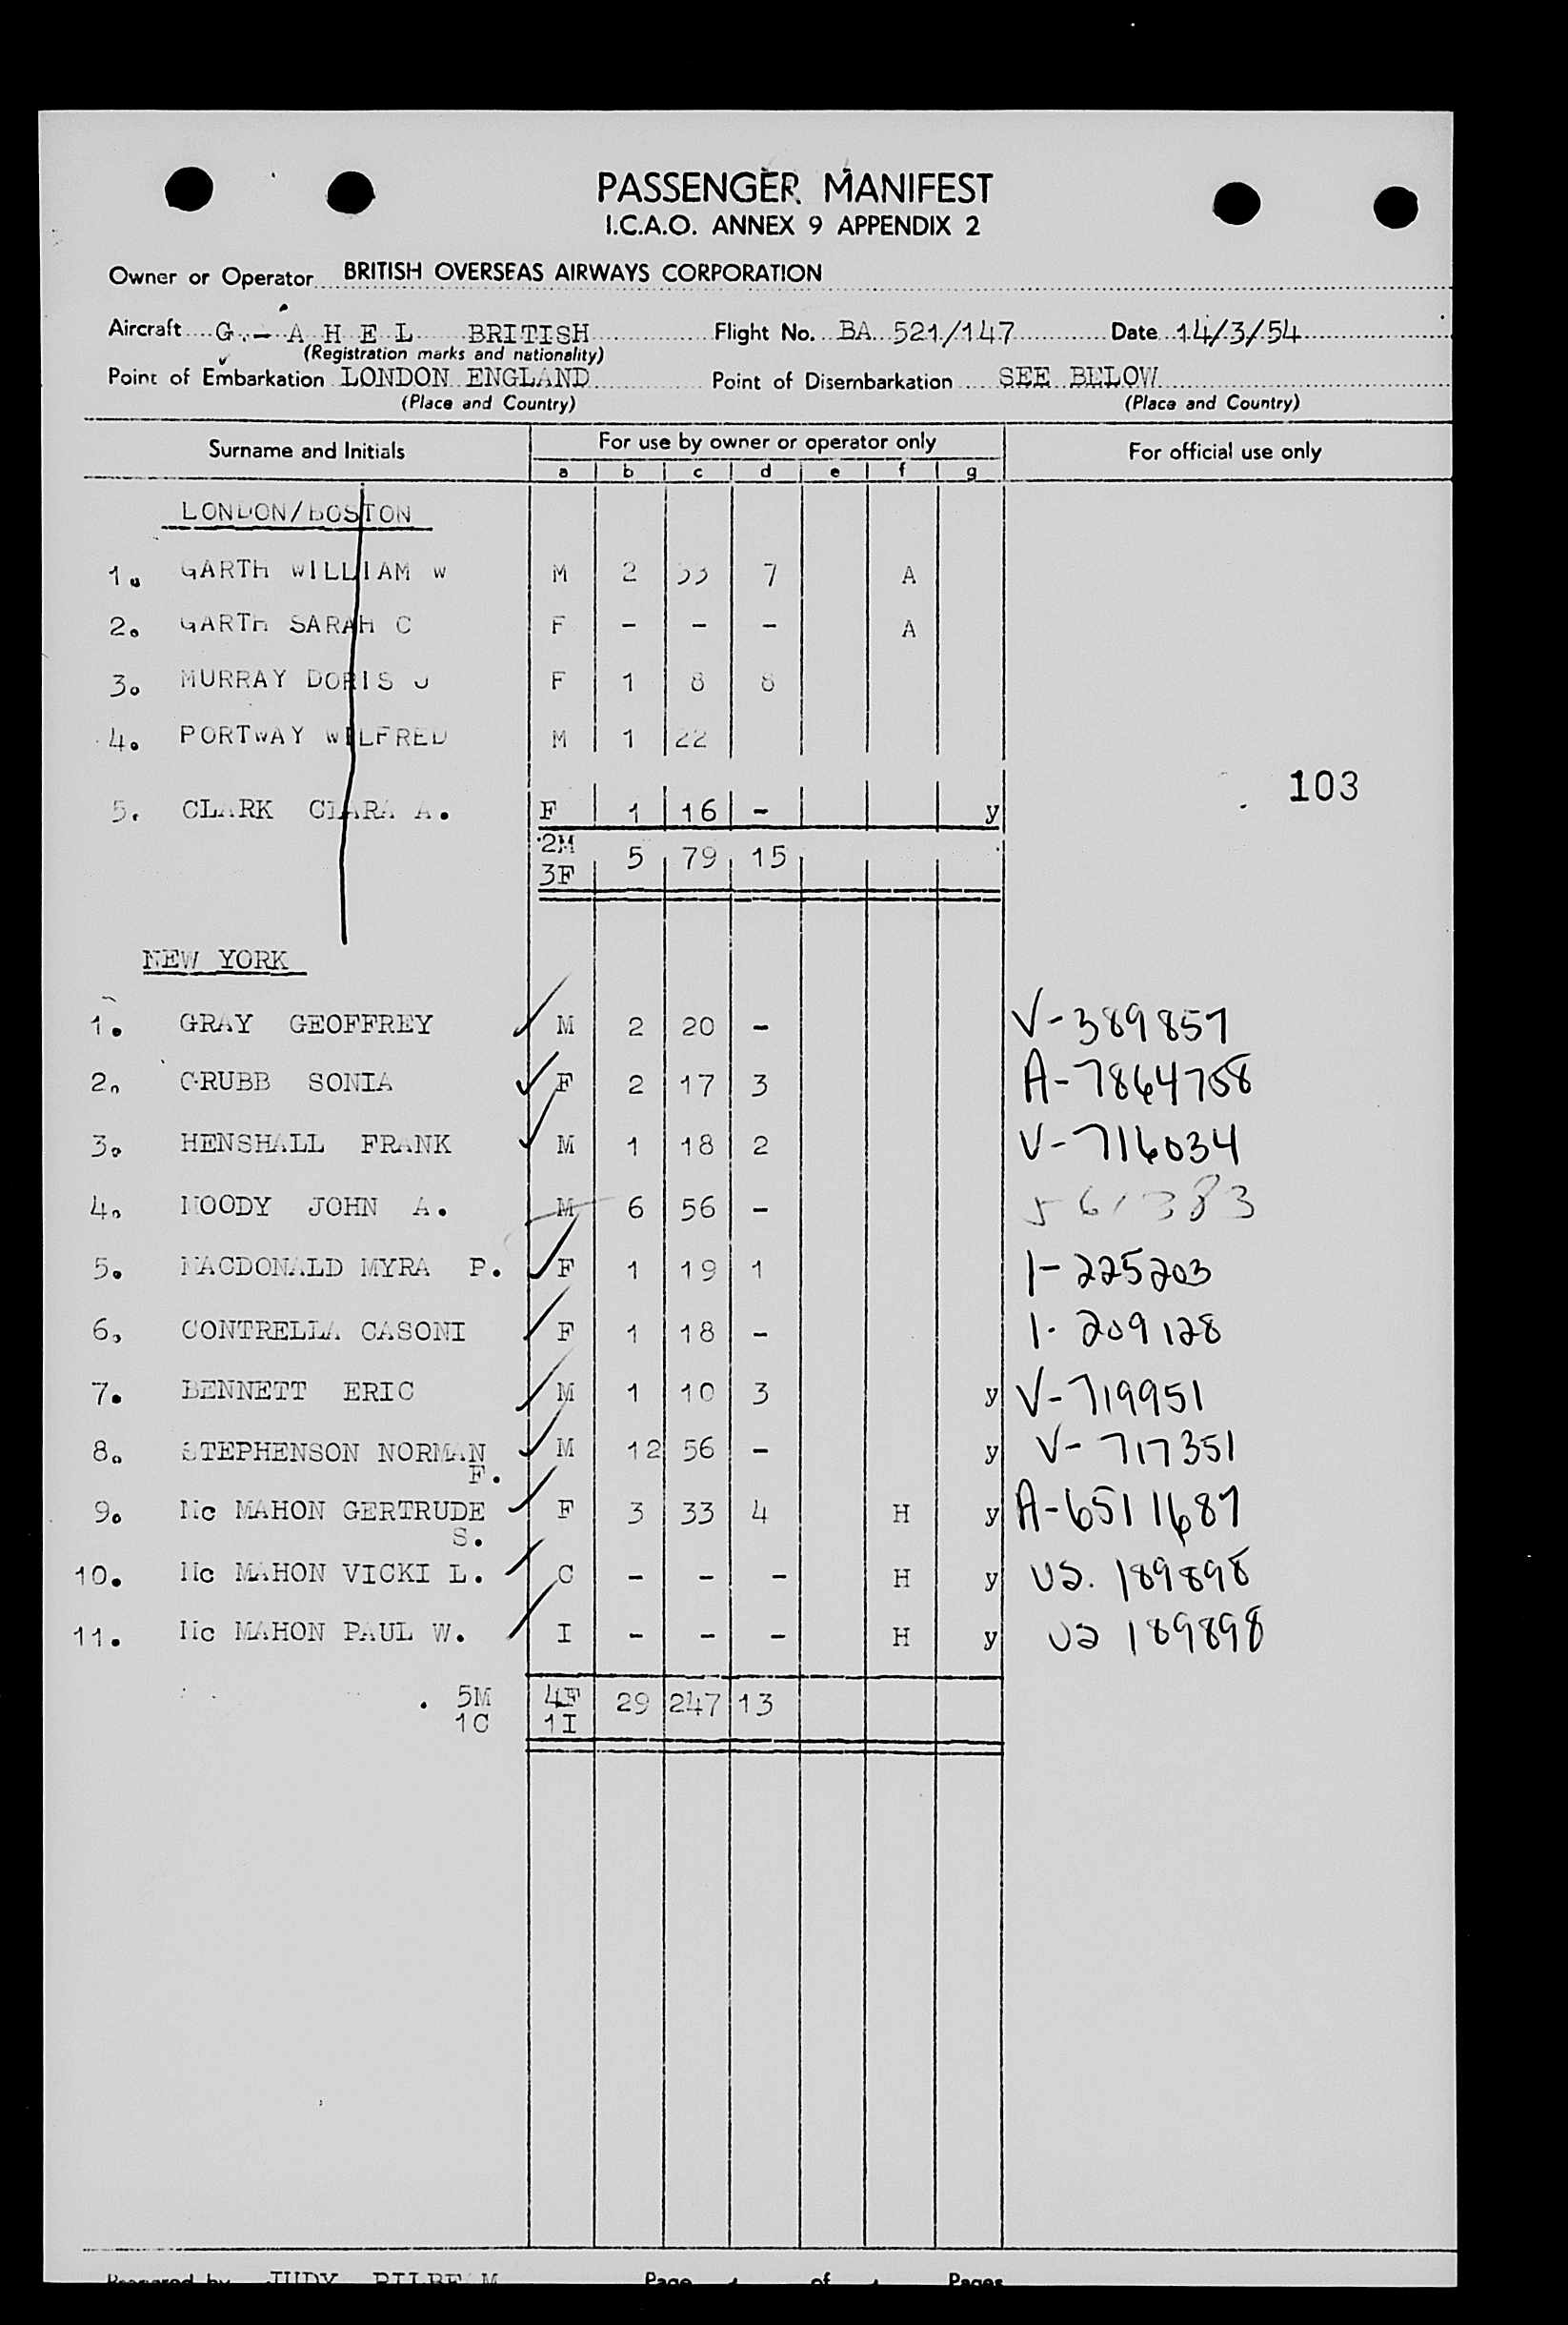 PASSENGER MANIFEST
I.C.A.O. ANNEX 9 APPENDIX 2
Owner or Operator BRITISH OVERSEAS AIRWAYS CORPORATION
Aircraft G.-A H E L BRITISH Flight No. BA 521/147 Date 14/3/54
(Registration marks and nationality)
Point of Embarkation LONDON ENGLAND Point of Disembarkation SEE BELOW
(Place and Country) (Place and Country)
Surname and Initials For use by owner or operator only For official use only
a b c d e f g
LONDON/BOSTON
1. GARTH WILLIAM W M 2 33 7 A
2. GARTH SARAH C F - - - A
3. MURRAY DORIS J F 1 8 8
4. PORTWAY WILFRED M 1 22
103
5. CLARK CLARA A. F 1 16 - y
2M 5 79 15
3F
NEW YORK
1. GRAY GEOFFREY M 2 20 - V-389857
2. GRUBB SONIA F 2 17 3 A-7864758
3. HENSHALL FRANK M 1 18 2 V-716034
4. MOODY JOHN A. M 6 56 - 561383
5. MACDONALD MYRA P. F 1 19 1 1-225203
6. CONTRELLA CASONI F 1 18 - 1-209128
7. BENNETT ERIC M 1 10 3 y V-719951
8. STEPHENSON NORMAN M 12 56 - y V-717351
F.
9. Mc MAHON GERTRUDE F 3 33 4 H y A-6511687
S.
10. Mc MAHON VICKI L. C - - - H y US. 189898
11. Mc MAHON PAUL W. I - - - H y US 189898
5M 4F 29 247 13
1C 1I
Prepared by JUDY PILBEAM Page 1 of 1 Pages